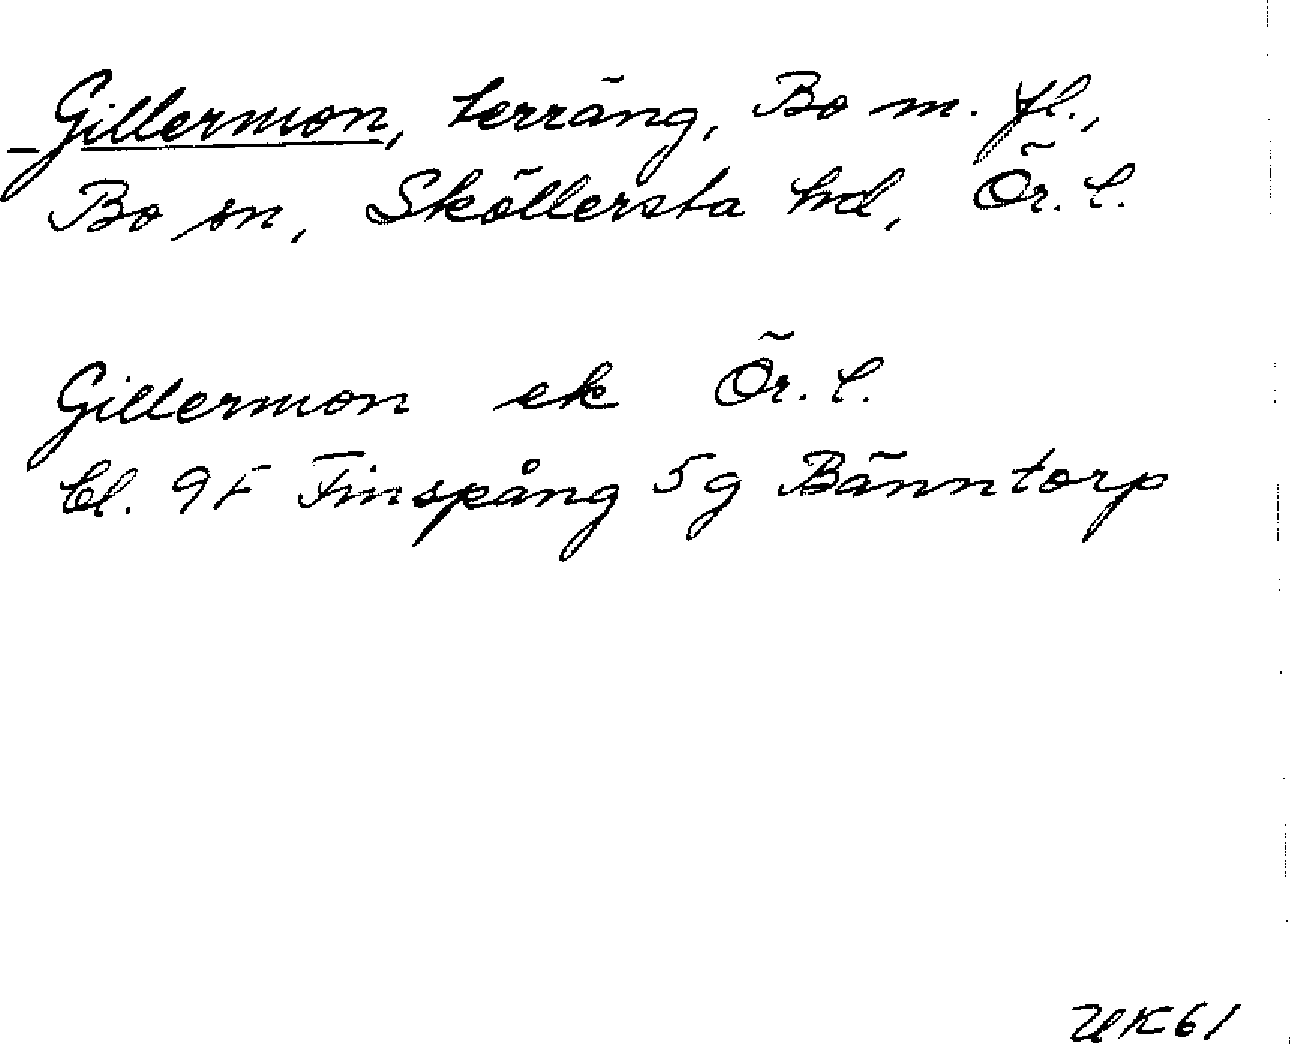 Gillermon, terräng, Bo m. fl.,
Bo sn, Sköllersta hd, Ör. l.
Gillermon ek Ör. l.
bl. 9F Finspång 5g Bänntorp
UK61